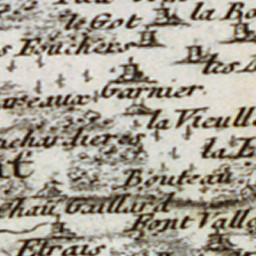 le Got
la Bo
s Fouchers
les
areaux
Garnier
la Vieulle
achardieres
la
Bouteau
hau Gaillard
Font Valle
Etrais